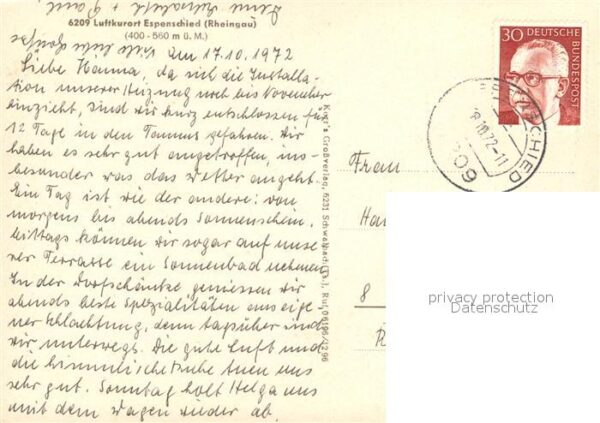 6209 Luftkurort Espenschied (Rheingau)
(400-560 m ü. M.)
am 17.10.1972
Liebe Hanna, da sich die Installa-
tion unserer Heizung noch bis November
einzieht, sind wir kurz entschlossen für
12 Tage in den Taunus gefahren. Wir
haben es sehr gut angetroffen, ins-
besonder was das Wetter angeht.
Ein Tag ist wie der andere: von
morgens bis abends Sonnenschein.
Mittags können wir sogar auf unse
rer Terrasse ein Sonnenbad nehmen.
In der Dorfschänke geniessen wir
abends beste Spezialitäten aus eige-
ner Schlachtung, denn tagsüber sind
wir unterwegs. Die gute Luft und
die himmlische Ruhe tuen uns
sehr gut. Sonntag holt Helga uns
mit dem Wagen wieder ab.
Krüger's Großverlag, 6231 Schwalbach (Ts.), Ruf 06196/1296
30 DEUTSCHE
BUNDESPOST
18.10.72-11
Frau
Ha
8
privacy protection
Datenschutz